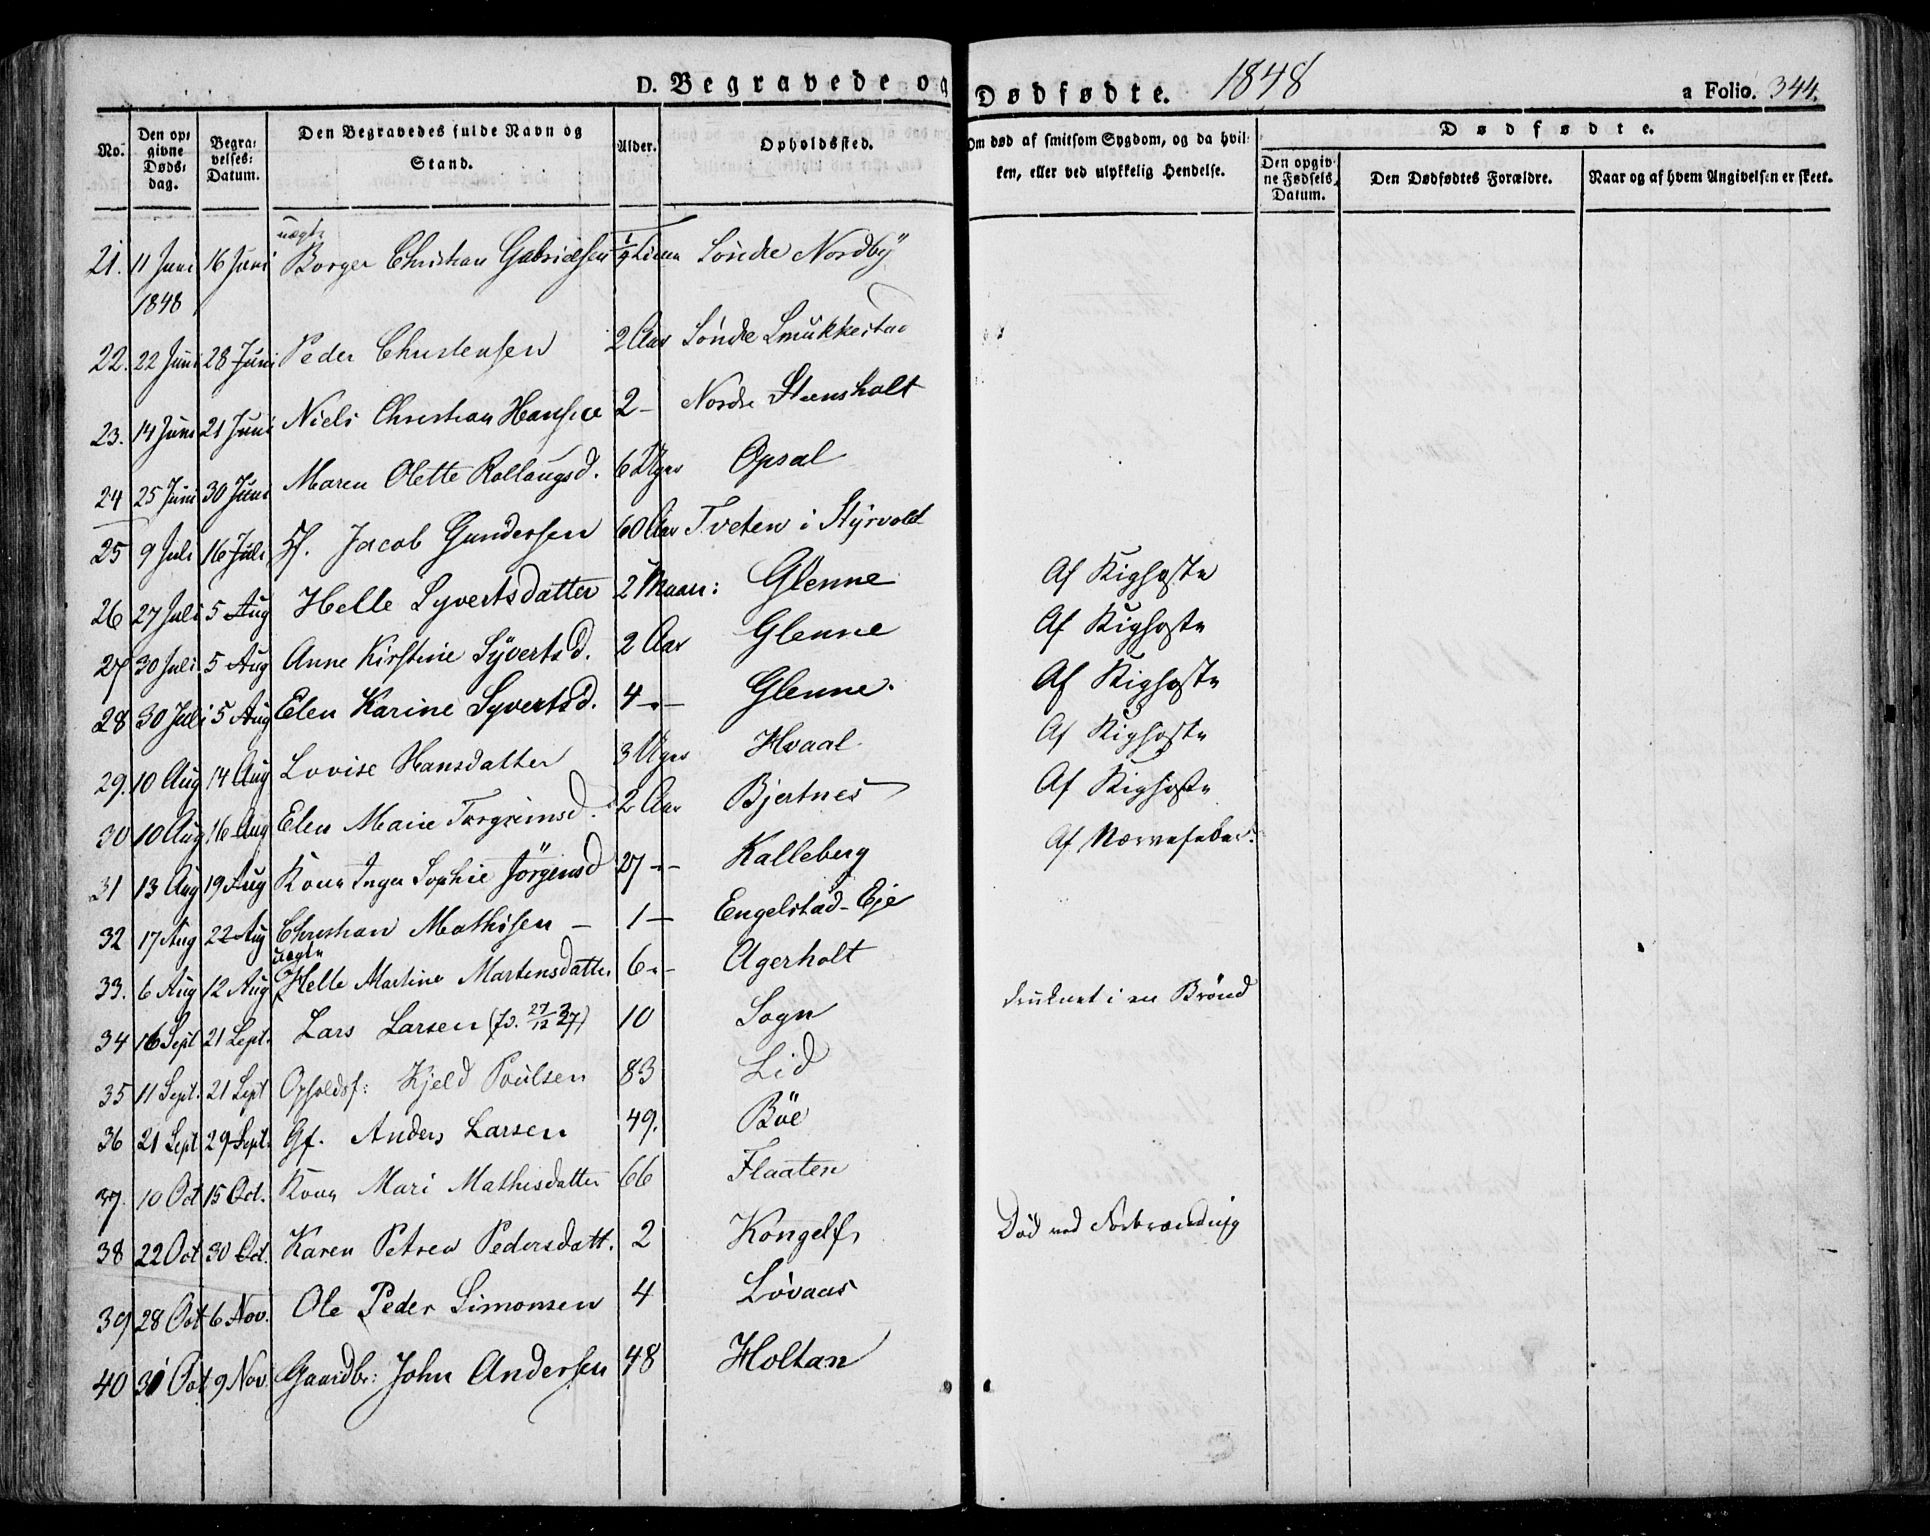 D. Begravede og Dødfødte. 1848 a Folio. 344.
No. | Den opgivne Dødsdag. | Begravelses-Datum. | Den Begravedes fulde Navn og Stand. | Alder. | Opholdssted. | Om død af smitsom Sygdom, og da hvilken, eller ved ulykkelig Hendelse. | Dødfødte. | Den opgivne Fødsels Datum. | Den Dødfødtes Forældre. | Naar og af hvem Angivelsen er skeet.
uægte
21. 11 Juni 16 Juni Borger Christian Gabrielsen Time Söndre Nordbÿ
1848
22. 22 Juni 28 Juni Peder Christensen 2 Aar Söndre Smukkestad
23. 14 Juni 21 Juni Niels Christian Hansen 2 — Nordre Steensholt
24 25 Juni 30 Juni Maren Olette Rollaugsd. 6 Uger Opsal
25 9 Juli 16 Juli Jacob Gundersen 60 Aar Tveten i Styrvold
26 27 Juli 5 Aug Helle Syvertsdatter 2 Maan: Glenne Af Kighoste
27 30 Juli 5 Aug Anne Kirstine Sÿvertsd. 2 Aar Glenne Af Kighoste
28 30 Juli 5 Aug Elen Karine Syvertsd. 4 -"- Glenne. Af Kighoste
29. 10 Aug 14 Aug Lovise Hansdatter 3 Uger Hvaal Af Kighoste
30 10 Aug 16 Aug Elen Marie Torgrimsd. 2 Aar Bjertnes Af Kighoste
31 13 Aug 19 Aug Kone Inger Sophie Jörgensd 27 -"- Kalleberg Af Nervefeber.
32 17 Aug 22 Aug Christian Mathisen — 1 — Engelstad-Eje
uægte
33. 6 Aug 12 Aug Helle Martine Martensdatter 6 -"- Agerholt
34 16 Sept 21 Sept. Lars Larsen (fd. 27/12 37) 10 Sogn druknet i en Brönd
35 11 Sept. 21 Sept Opholdsf: Kjeld Poulsen 83 Lid
36 21 Sept 29 Sept. Gf. Anders Larsen 49. Böe
37. 10 Oct 15 Oct. Kone Mari Mathisdatter 66 Flaaten
38 22 Oct 30 Oct. Karen Petrea Pedersdatt. 2 Kongelf Död ved Forbrænding
39 28 Oct 6 Nov. Ole Peder Simonsen 4 Lövaas
40 31 Oct 9 Nov. Gaardbr: John Andersen 48 Holtan